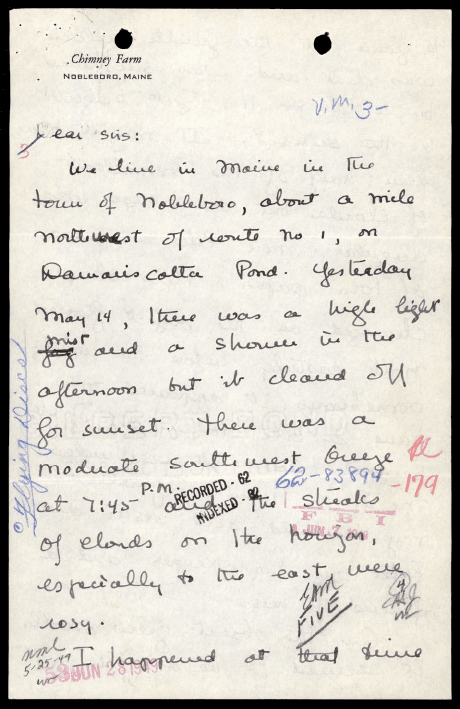 Chimney Farm
NOBLEBORO, MAINE
V.M. 3-
Dear sirs:
3
We live in Maine in the
town of Nobleboro, about a mile
northwest of route no 1, on
Damariscotta Pond. Yesterday
May 14, there was a high light
mist
fog and a shower in the
afternoon but it cleared off
for sunset. There was a
moderate southwest breeze
62-83894
-179
at 7:45 P.M. and the streaks
RECORDED - 62
INDEXED - 62
FBI
JUN 7
of clouds on the horizon,
especially to the east were
rosy.
FIVE
I happened at that time
5-25-49
58 JUN 28 1949
Flying Discs